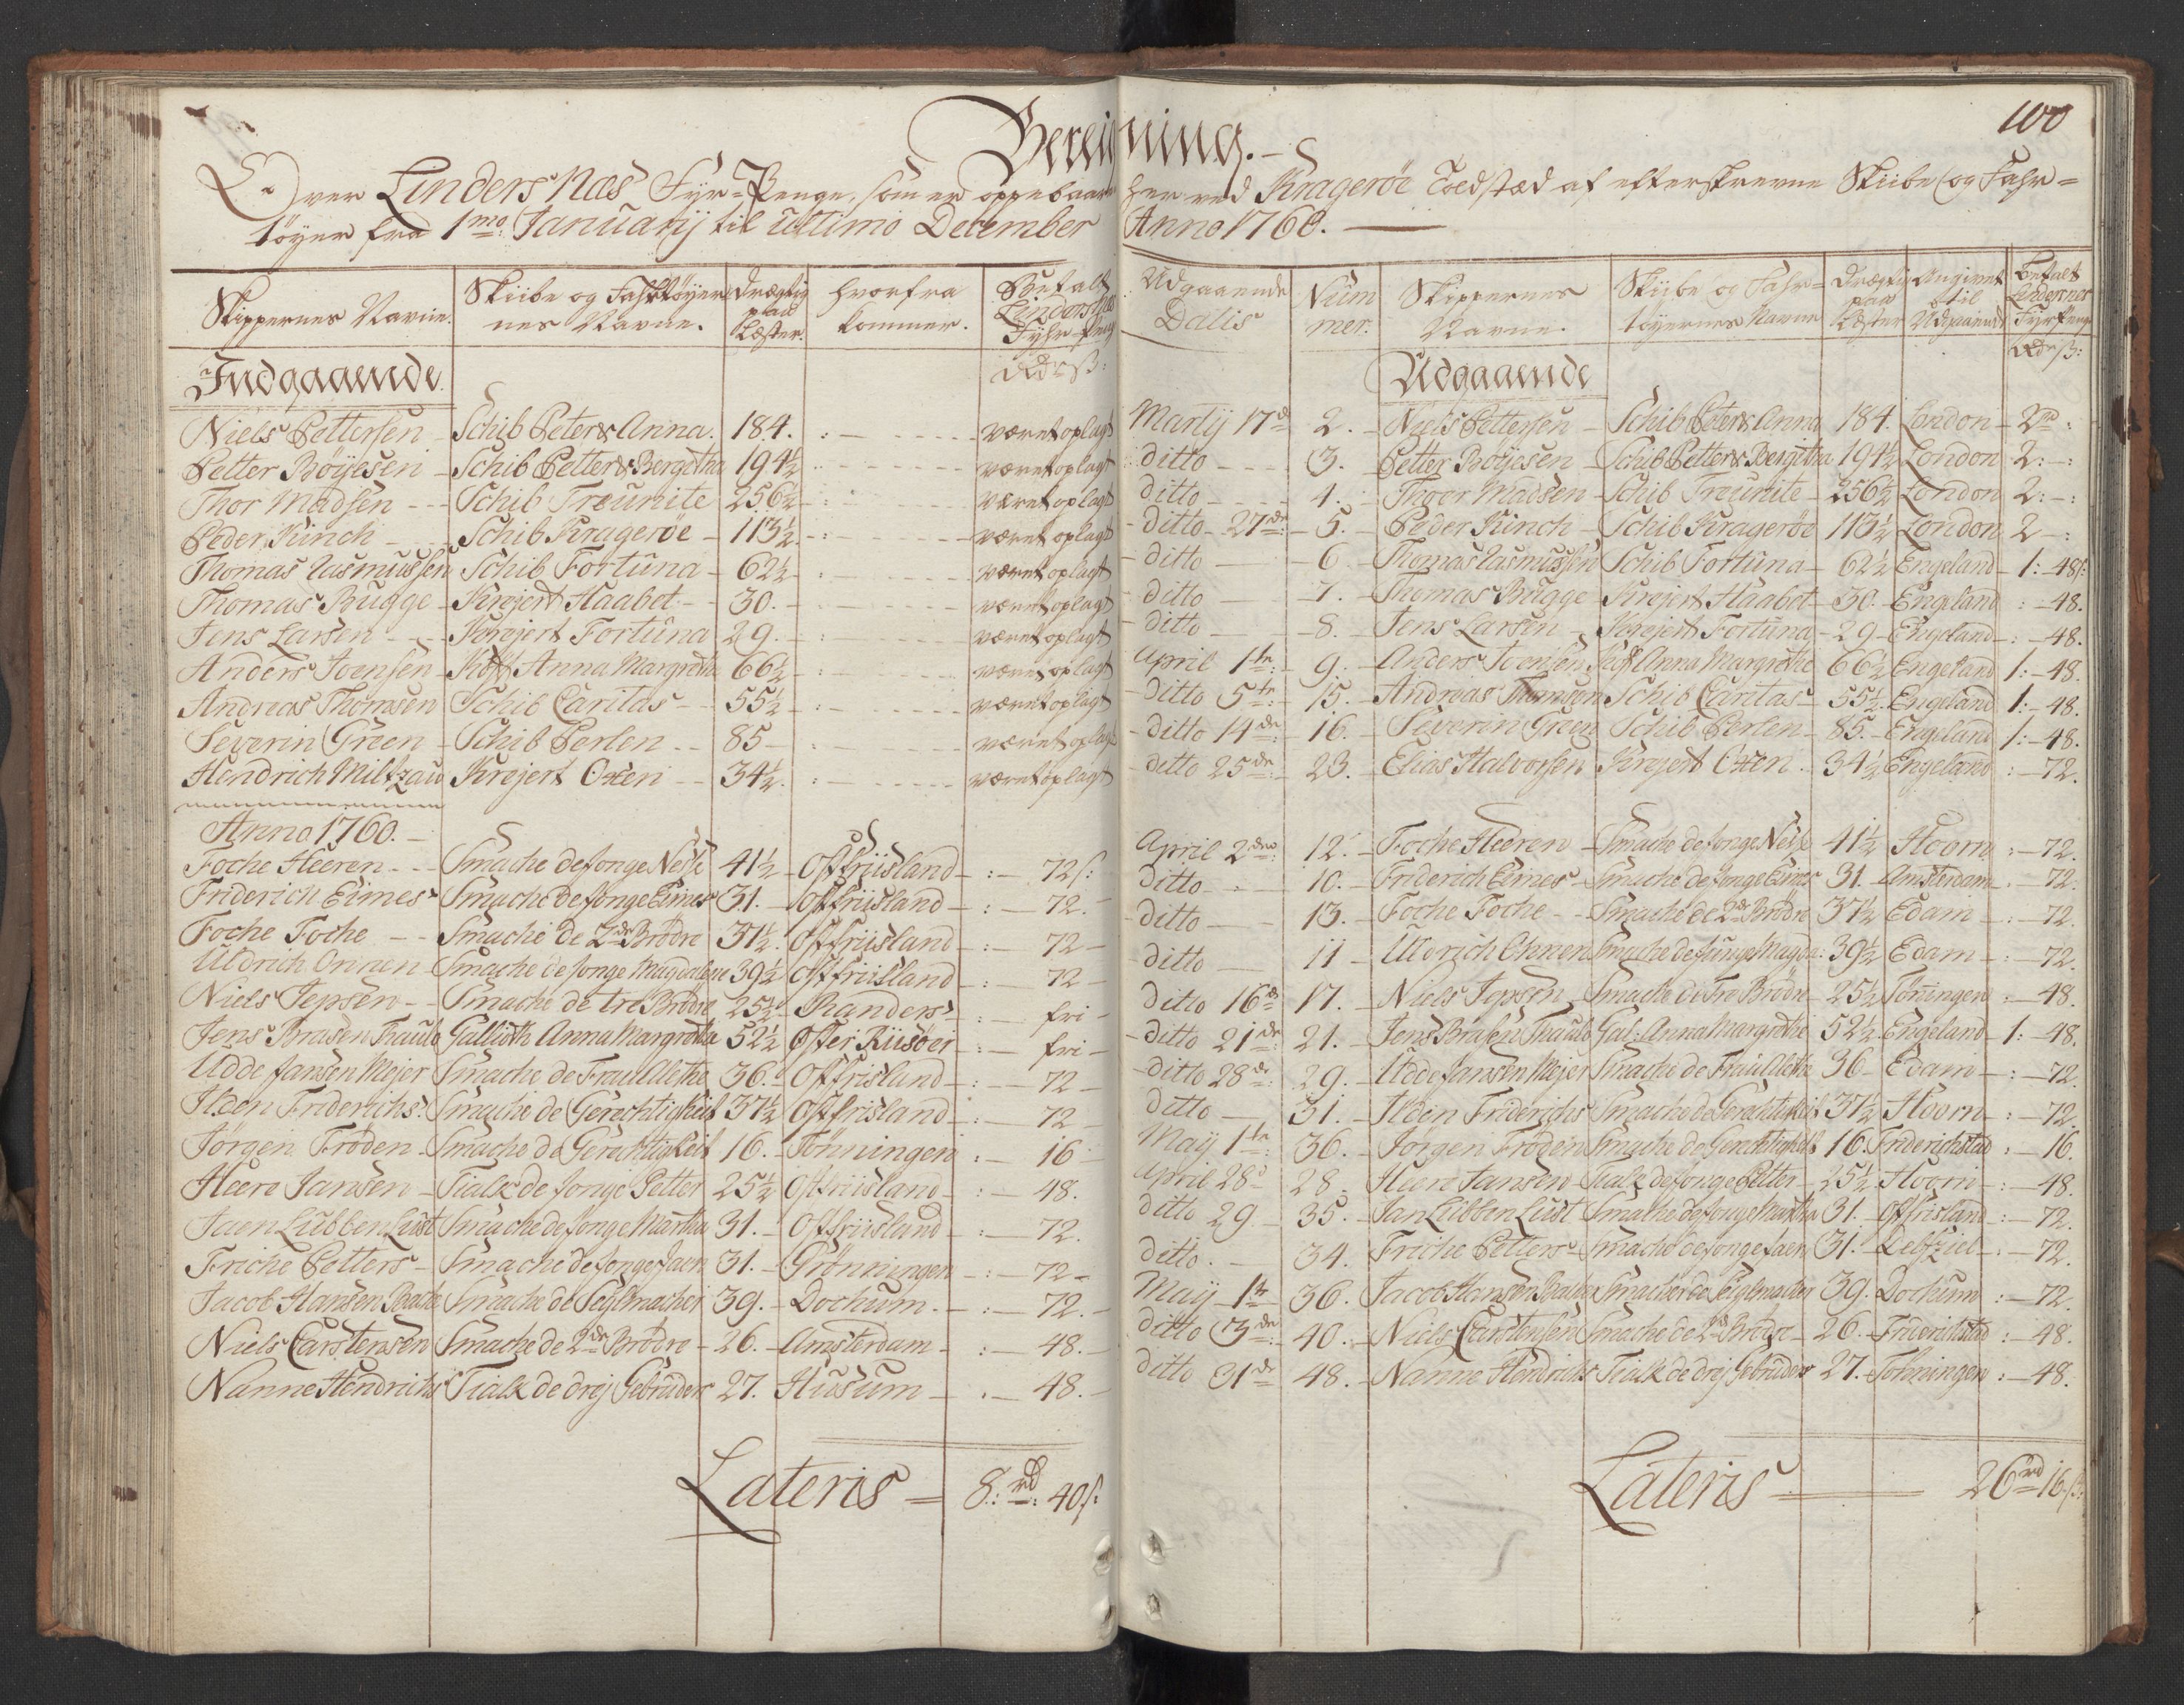 100
Bereigning.
Over Linders Næs Fyr-Penge, som er oppebaaren her ved Krageröe Toldstæd af efterskrevne Skiibe og Fahr-
töyer fra 1mo: Januarij til ultimo December Anno 1760.
Skippernes Navne. Skiibe og Fahrtöyer nes Navne. Drægtig paa Læster. hvorfra kommer. Betalt Lindersnæs Fyhr-Peng
Indgaaende. Rdr ß:
Niels Pettersen Schib Peter & Anna. 184. været oplagt
Petter Böyesen Schib Petter & Bergetha 194½ været oplagt
Thor Madsen Schib Treunite 256½ været oplagt
Peder Kinch Schib Kragerøe 113½ været oplagt
Thomas Rasmussen Schib Fortuna 62½ været oplagt
Thomas Bugge Krejert Haabet 30. været oplagt
Jens Larsen Krejert Fortuna 29. været oplagt
Anders Joensen Hoff Anna Margretha 66½ været oplagt
Andreas Thomsen Schib Caritas 55½ været oplagt
Severin Green Schib Perlen 85 været oplagt
Hendrich Miltzau Krejert Oxen 34½. været oplagt
Anno 1760.
Foche Heeren Smache de Jonge Nesse 41½ Ostfriisland 72ß
Friderich Eimes Smache de Jonge Eimes 31. Ostfriisland 72.
Foche Foche Smache de 2de Brödre 37½. Ostfriisland 72
Uldrich Onnen Smache de Jonge Magdalene 39½ Ostfriisland 72
Niels Jepsen Smache de tre Brödre 25½ Randers fri
Jens Brasen Traulb Gallioth Anna Margretha 52½ Öster Riisöer fri
Udde Jansen Mejer Smache de Frau Alethe 36. Ostfrisland 72
Ilden Friderichs. Smache de Gerechtigkeit 37½ Ostfrisland 72
Jörgen Fröden Smache de Gerechtigkeit 16. Tönningen 16
Heere Jansen Tialk de Jonge Petter 25½ Ostfriisland 48.
Jaen Lübben Lust Smache de Jonge Martha 31. Ostfriisland 72.
Friche Petters Smache de Jonge Jaen 31. Grönningen 72
Jacob Hansen Smache de Seglmacher 39. Dochum 72.
Niels Carstensen Smache de 2de Brödre 26. Amsterdam 48.
Nanne Hendrichs Tialk de drej Gebrüder 27. Husum 48.
Lateris 8: rd: 40ß:
Udgaaende Datis Num mer. Skippernes Navne. Skiibe og Fahr-töyernes Navne Drægtig paa Læster Angivet til Udgaaende Betalt Lindersnes Fyrpenge
Udgaaende Rdr ß:
Martij 17d 2. Niels Pettersen Schib Peter & Anna 184. London 2rd:
ditto 3. Petter Böyesen Schib Petter & Bergetha 194½ London 2:
ditto 4. Thoor Madsen Schib Treunite 256½ London 2:
ditto 27de: 5. Peder Kinch Schib Kragerøe 113½ London 2
ditto 6 Thomas Rasmussen Schib Fortuna 62½ Engeland 1: 48ß:
ditto 7. Thomas Bugge Krejert Haabet 30. Engeland 48.
ditto 8. Jens Larsen Krejert Fortuna 29 Engeland 48.
April 1te: 9. Anders Joensen Hoff Anna Margrethe 66½ Engeland 1: 48.
ditto 5te: 15. Andreas Thomsen Schib Caritas 55½. Engeland 1: 48.
ditto 14de: 16. Severin Green Schib Perlen 85. Engeland 1: 48.
ditto 25de: 23. Elias Halvorsen Krejert Oxen 34½ Engeland 72.
April 2den: 12. Foche Heeren Smache de Jonge Nesse 41½ Hoorn 72.
ditto 10. Friderich Eimes Smache de Jonge Eimes 31. Amsterdam 72.
ditto 13. Foche Foche Smache de 2de Brödre 37½ Edam 72.
ditto 11 Uldrich Onnen Smache de Junge Magda: 39½ Edam 72.
ditto 16d 17. Niels Jepsen Smache de Tre Brödre 25½ Tönningen 48.
ditto 21de: 21. Jens Brasen Traulb Gal: Anna Margrethe 52½. Engeland 1: 48.
ditto 28de: 29. Udde Jansen Mejer Smache de Frau Alethe 36 Edam 72.
ditto 31. Ilden Friderichs Smache de Gerechtikeit 37½ Hoorn 72.
Maij 1te 36. Jörgen Fröden Smache de Gerechtigkeit 16. Friderichstad 16.
April 28d 28 Heere Jansen Tialk de Jonge Petter 25½ Hoorn 48.
ditto 29. 35. Jan Lübben Lust Smache de Jonge Martha 31. Ostfrisland 72.
ditto. 34. Friche Petters Smache de Jonge Jaen 31. Delfziel 72.
Maij 1te 36. Jacob Hansen Smache de Seiglmacher 39. Dochum 72.
ditto 3de: 40. Niels Carstensen Smache de 2de Brödre 26. Friderichstad 48.
ditto 31de 48. Nanne Hendrichs Tialk de drej Gebrüder 27. Tönningen 48.
Lateris 26rd 16ß: